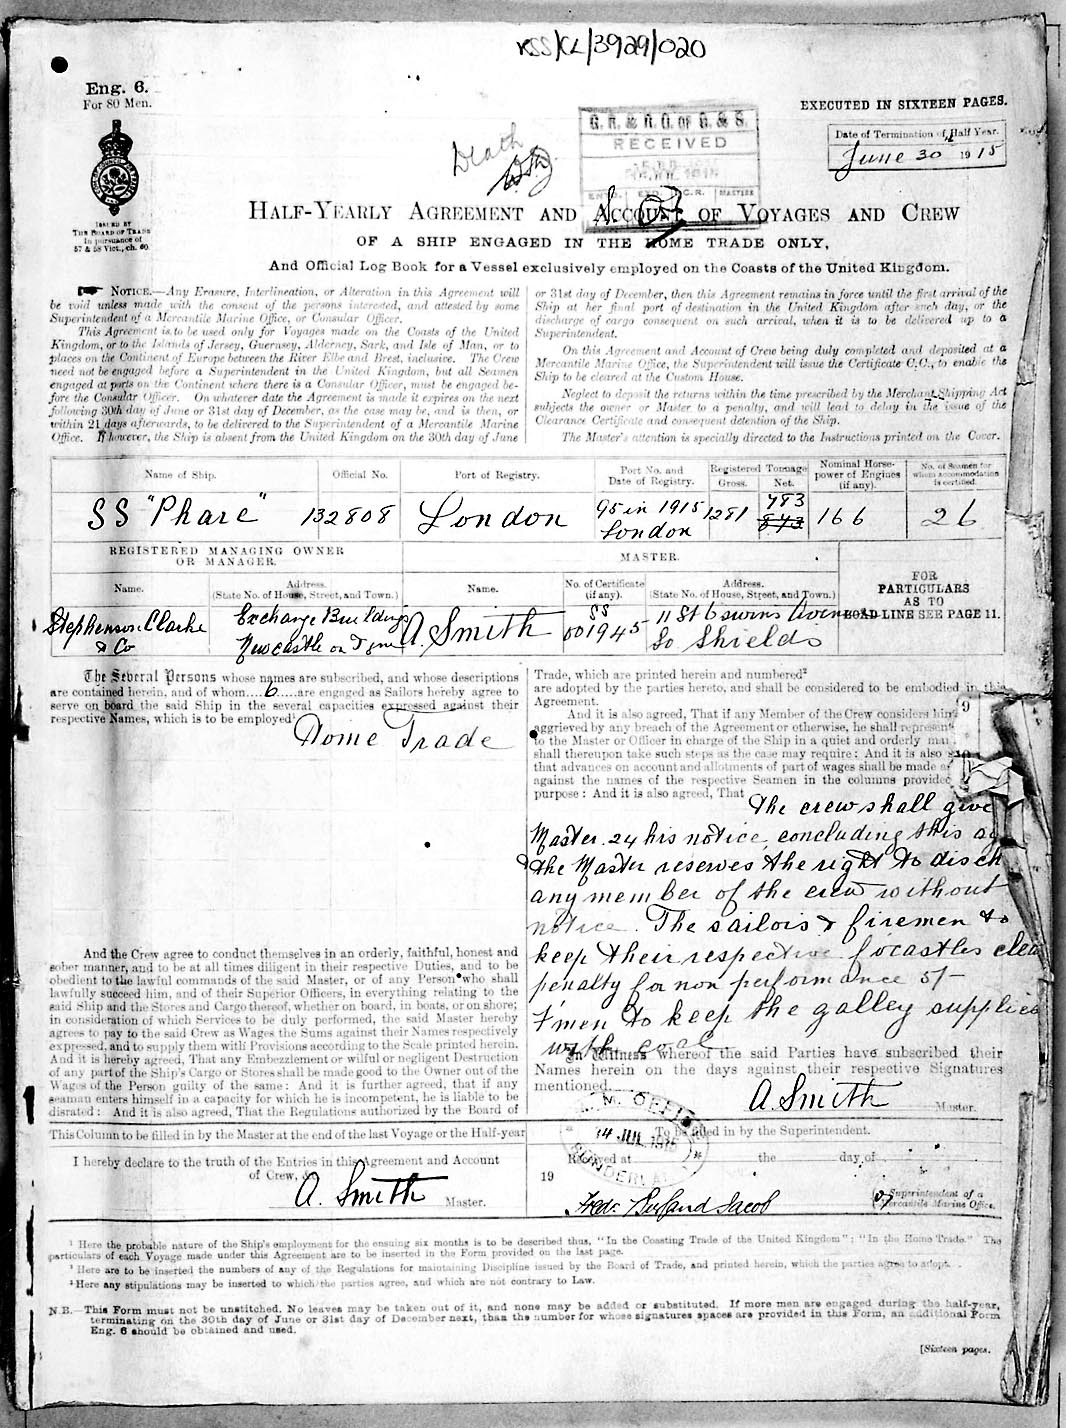 RSS/CL/3929/020
Eng. 6.
For 80 Men.
EXECUTED IN SIXTEEN PAGES.
Date of Termination of Half Year.
June 30 1915
G. R. & R. O. OF S. & S.
RECEIVED
Death
ISSUED BY
THE BOARD OF TRADE
In pursuance of
57 & 58 Vict., ch. 60.
HALF-YEARLY AGREEMENT AND ACCOUNT OF VOYAGES AND CREW
OF A SHIP ENGAGED IN THE HOME TRADE ONLY,
And Official Log Book for a Vessel exclusively employed on the Coasts of the United Kingdom.
NOTICE.—Any Erasure, Interlineation, or Alteration in this Agreement will
be void unless made with the consent of the persons interested, and attested by some
Superintendent of a Mercantile Marine Office, or Consular Officer.
This Agreement is to be used only for Voyages made on the Coasts of the United
Kingdom, or to the Islands of Jersey, Guernsey, Alderney, Sark, and Isle of Man, or to
places on the Continent of Europe between the River Elbe and Brest, inclusive. The Crew
need not be engaged before a Superintendent in the United Kingdom, but all Seamen
engaged at ports on the Continent where there is a Consular Officer, must be engaged be-
fore the Consular Officer. On whatever date the Agreement is made it expires on the next
following 30th day of June or 31st day of December, as the case may be, and is then, or
within 21 days afterwards, to be delivered to the Superintendent of a Mercantile Marine
Office. If however, the Ship is absent from the United Kingdom on the 30th day of June
or 31st day of December, then this Agreement remains in force until the first arrival of the
Ship at her final port of destination in the United Kingdom after such day, or the
discharge of cargo consequent on such arrival, when it is to be delivered up to a
Superintendent.
On this Agreement and Account of Crew being duly completed and deposited at a
Mercantile Marine Office, the Superintendent will issue the Certificate C.C., to enable the
Ship to be cleared at the Custom House.
Neglect to deposit the returns within the time prescribed by the Merchant Shipping Act
subjects the owner or Master to a penalty, and will lead to delay in the issue of the
Clearance Certificate and consequent detention of the Ship.
The Master's attention is specially directed to the Instructions printed on the Cover.
Name of Ship.
Official No.
Port of Registry.
Port No. and
Date of Registry.
Registered Tonnage
Gross. Net.
Nominal Horse-
power of Engines
(if any).
No. of Seamen for
whom accommodation
is certified.
SS "Phare"
132808
London
95 in 1915
London
1281
783
873
166
26
REGISTERED MANAGING OWNER
OR MANAGER.
MASTER.
FOR
PARTICULARS
AS TO
LOAD LINE SEE PAGE 11.
Name.
Address.
(State No. of House, Street, and Town.)
Name.
No. of Certificate
(if any).
Address.
(State No. of House, Street, and Town.)
Stephenson Clarke
& Co
Exchange Buildings
Newcastle on Tyne
A. Smith
SS
001945
11 St Oswins Avenue
So Shields
The Several Persons whose names are subscribed, and whose descriptions
are contained herein, and of whom....6....are engaged as Sailors hereby agree to
serve on board the said Ship in the several capacities expressed against their
respective Names, which is to be employed¹
Home Trade
And the Crew agree to conduct themselves in an orderly, faithful, honest and
sober manner, and to be at all times diligent in their respective Duties, and to be
obedient to the lawful commands of the said Master, or of any Person who shall
lawfully succeed him, and of their Superior Officers, in everything relating to the
said Ship and the Stores and Cargo thereof, whether on board, in boats, or on shore;
in consideration of which Services to be duly performed, the said Master hereby
agrees to pay to the said Crew as Wages the Sums against their Names respectively
expressed, and to supply them with Provisions according to the Scale printed herein.
And it is hereby agreed, That any Embezzlement or wilful or negligent Destruction
of any part of the Ship's Cargo or Stores shall be made good to the Owner out of the
Wages of the Person guilty of the same: And it is further agreed, that if any
seaman enters himself in a capacity for which he is incompetent, he is liable to be
disrated: And it is also agreed, That the Regulations authorized by the Board of
Trade, which are printed herein and numbered²
are adopted by the parties hereto, and shall be considered to be embodied in this
Agreement.
And it is also agreed, That if any Member of the Crew considers him
aggrieved by any breach of the Agreement or otherwise, he shall represent
to the Master or Officer in charge of the Ship in a quiet and orderly man
shall thereupon take such steps as the case may require: And it is also s
that advances on account and allotments of part of wages shall be made a
against the names of the respective Seamen in the columns provided
purpose: And it is also agreed, That
The crew shall give
Master 24 hrs notice, concluding this ag
& the Master reserves the right to disch
any member of the crew without
notice. The sailors & firemen to
keep their respective focastles clea
penalty for non performance 5/-
F'men to keep the galley supplied
with coal
In Witness whereof the said Parties have subscribed their
Names herein on the days against their respective Signatures
mentioned.
A. Smith Master.
This Column to be filled in by the Master at the end of the last Voyage or the Half-year
To be filled in by the Superintendent.
M. M. OFFICE
14 JUL 1915
SUNDERLAND
I hereby declare to the truth of the Entries in this Agreement and Account
of Crew, &
A. Smith Master.
Received at the day of
19
Superintendent of a
Mercantile Marine Office.
¹ Here the probable nature of the Ship's employment for the ensuing six months is to be described thus, "In the Coasting Trade of the United Kingdom"; "In the Home Trade." The
particulars of each Voyage made under this Agreement are to be inserted in the Form provided on the last page.
² Here are to be inserted the numbers of any of the Regulations for maintaining Discipline issued by the Board of Trade, and printed herein, which the parties agree to adopt.
³ Here any stipulations may be inserted to which the parties agree, and which are not contrary to Law.
N.B.—This Form must not be unstitched. No leaves may be taken out of it, and none may be added or substituted. If more men are engaged during the half-year,
terminating on the 30th day of June or 31st day of December next, than the number for whose signatures spaces are provided in this Form, an additional Form
Eng. 6 should be obtained and used.
[Sixteen pages.